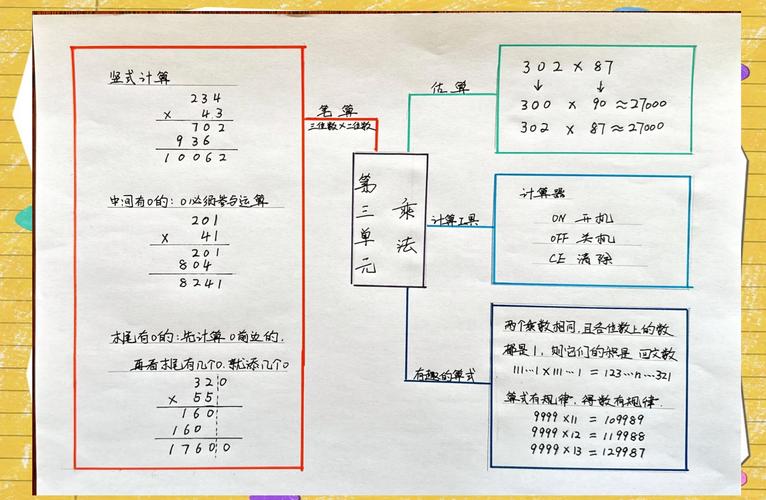 竖式计算
234
× 43
702
936
10062
中间有0的：0必须参与运算
201
× 41
201
804
8241
末尾有0的：先计算0前边的，
再看末尾有几个0.就添几个0
320
× 55
160
160
17600
笔算
三位数×二位数
第三单元
乘法
估算
302 × 87
↓ ↓
300 × 90 ≈27000
302 × 87≈27000
计算工具
计算器
ON 开机
OFF 关机
CE 清除
有趣的算式
两个乘数相同，且各位数上的数
都是1，则它们的积是 回文数
111…1×111…1 = 123…n…321
算式有规律，得数有规律.
9999 ×11 = 109989
9999 ×12 = 119988
9999 ×13 = 129987